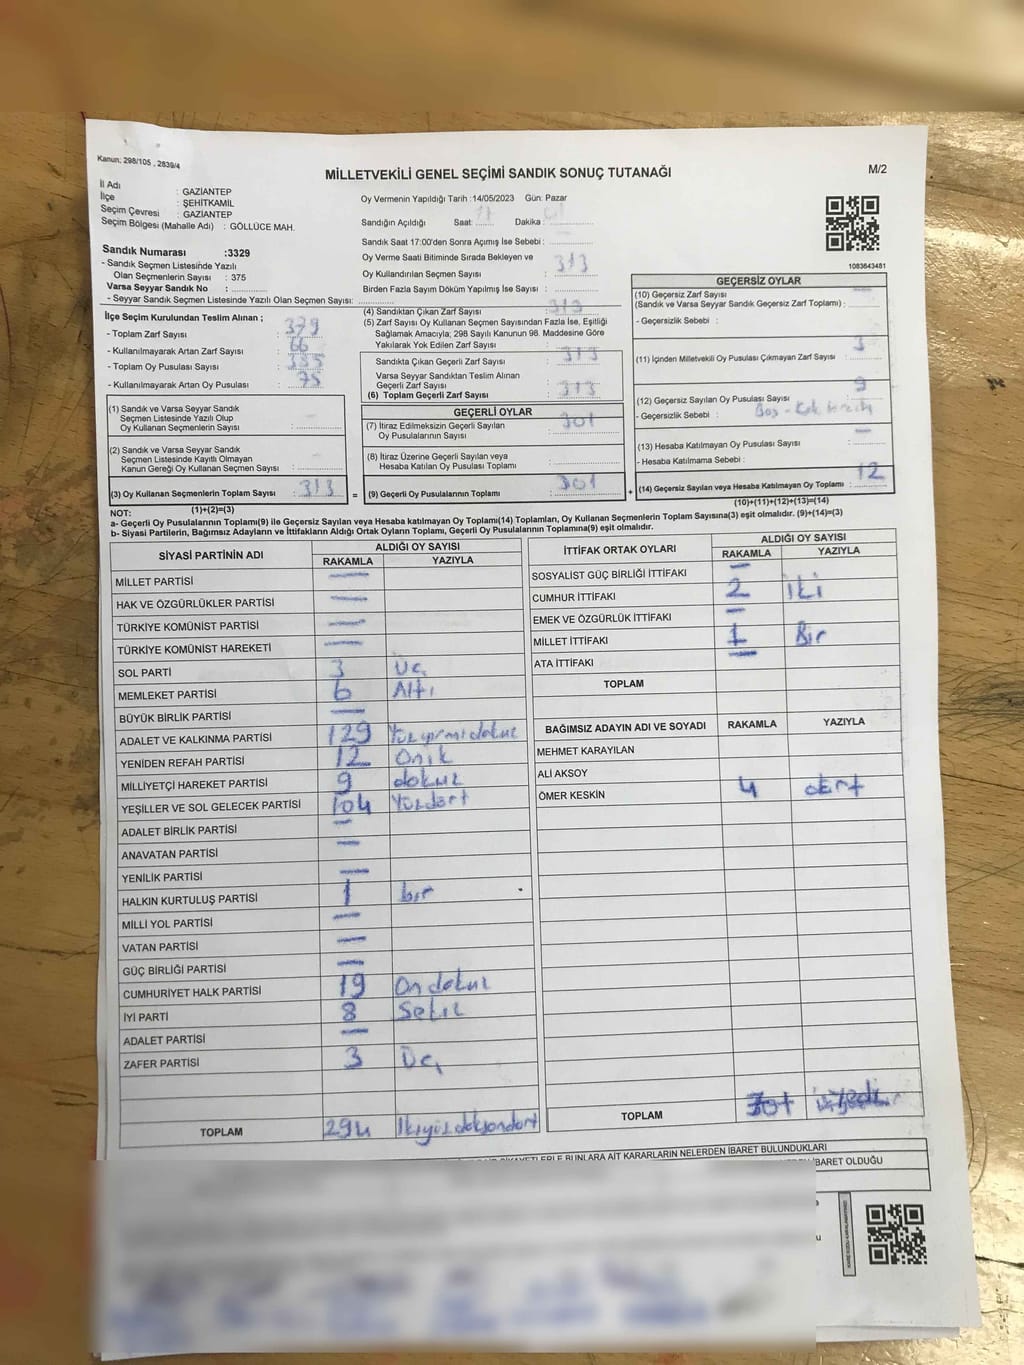 Kanun: 298/105 , 2839/4
MİLLETVEKİLİ GENEL SEÇİMİ SANDIK SONUÇ TUTANAĞI
M/2
İl Adı : GAZİANTEP
İlçe : ŞEHİTKAMİL
Seçim Çevresi : GAZİANTEP
Seçim Bölgesi (Mahalle Adı) : GÖLLÜCE MAH.
Sandık Numarası :3329
- Sandık Seçmen Listesinde Yazılı
Olan Seçmenlerin Sayısı : 375
Varsa Seyyar Sandık No :
- Seyyar Sandık Seçmen Listesinde Yazılı Olan Seçmen Sayısı:
Oy Vermenin Yapıldığı Tarih :14/05/2023 Gün: Pazar
Sandığın Açıldığı Saat: 17 Dakika :
Sandık Saat 17:00'den Sonra Açımış İse Sebebi :
Oy Verme Saati Bitiminde Sırada Bekleyen ve
Oy Kullandırılan Seçmen Sayısı : 313
Birden Fazla Sayım Döküm Yapılmış İse Sayısı :
1083643481
İlçe Seçim Kurulundan Teslim Alınan ;
- Toplam Zarf Sayısı : 379
- Kullanılmayarak Artan Zarf Sayısı : 66
- Toplam Oy Pusulası Sayısı :
- Kullanılmayarak Artan Oy Pusulası : 75
(1) Sandık ve Varsa Seyyar Sandık
Seçmen Listesinde Yazılı Olup
Oy Kullanan Seçmenlerin Sayısı :
(2) Sandık ve Varsa Seyyar Sandık
Seçmen Listesinde Kayıtlı Olmayan
Kanun Gereği Oy Kullanan Seçmen Sayısı :
(3) Oy Kullanan Seçmenlerin Toplam Sayısı : 313
(1)+(2)=(3)
(4) Sandıktan Çıkan Zarf Sayısı : 313
(5) Zarf Sayısı Oy Kullanan Seçmen Sayısından Fazla İse, Eşitliği
Sağlamak Amacıyla; 298 Sayılı Kanunun 98. Maddesine Göre
Yakılarak Yok Edilen Zarf Sayısı :
Sandıkta Çıkan Geçerli Zarf Sayısı : 313
Varsa Seyyar Sandıktan Teslim Alınan
Geçerli Zarf Sayısı :
(6) Toplam Geçerli Zarf Sayısı : 313
GEÇERLİ OYLAR
(7) İtiraz Edilmeksizin Geçerli Sayılan
Oy Pusulalarının Sayısı : 301
(8) İtiraz Üzerine Geçerli Sayılan veya
Hesaba Katılan Oy Pusulası Toplamı :
= (9) Geçerli Oy Pusulalarının Toplamı : 301
GEÇERSİZ OYLAR
(10) Geçersiz Zarf Sayısı
(Sandık ve Varsa Seyyar Sandık Geçersiz Zarf Toplamı) : —
- Geçersizlik Sebebi :
(11) İçinden Milletvekili Oy Pusulası Çıkmayan Zarf Sayısı : 3
(12) Geçersiz Sayılan Oy Pusulası Sayısı : 9
- Geçersizlik Sebebi : Boş -
(13) Hesaba Katılmayan Oy Pusulası Sayısı : —
- Hesaba Katılmama Sebebi :
+ (14) Geçersiz Sayılan veya Hesaba Katılmayan Oy Toplamı : 12
(10)+(11)+(12)+(13)=(14)
NOT:
a- Geçerli Oy Pusulalarının Toplamı(9) ile Geçersiz Sayılan veya Hesaba katılmayan Oy Toplamı(14) Toplamları, Oy Kullanan Seçmenlerin Toplam Sayısına(3) eşit olmalıdır. (9)+(14)=(3)
b- Siyasi Partilerin, Bağımsız Adayların ve İttifakların Aldığı Ortak Oyların Toplamı, Geçerli Oy Pusulalarının Toplamına(9) eşit olmalıdır.
SİYASİ PARTİNİN ADI ALDIĞI OY SAYISI
RAKAMLA YAZIYLA
MİLLET PARTİSİ —
HAK VE ÖZGÜRLÜKLER PARTİSİ —
TÜRKİYE KOMÜNİST PARTİSİ —
TÜRKİYE KOMÜNİST HAREKETİ —
SOL PARTİ 3 Üç
MEMLEKET PARTİSİ 6 Altı
BÜYÜK BİRLİK PARTİSİ —
ADALET VE KALKINMA PARTİSİ 129 Yüzyirmidokuz
YENİDEN REFAH PARTİSİ 12 Onik
MİLLİYETÇİ HAREKET PARTİSİ 9 dokuz
YEŞİLLER VE SOL GELECEK PARTİSİ 104 Yüzdört
ADALET BİRLİK PARTİSİ —
ANAVATAN PARTİSİ —
YENİLİK PARTİSİ —
HALKIN KURTULUŞ PARTİSİ 1 bir
MİLLİ YOL PARTİSİ —
VATAN PARTİSİ —
GÜÇ BİRLİĞİ PARTİSİ —
CUMHURİYET HALK PARTİSİ 19 Ondokuz
İYİ PARTİ 8 Sekiz
ADALET PARTİSİ —
ZAFER PARTİSİ 3 Üç
TOPLAM 294 İkiyüzdoksandört
İTTİFAK ORTAK OYLARI ALDIĞI OY SAYISI
RAKAMLA YAZIYLA
SOSYALİST GÜÇ BİRLİĞİ İTTİFAKI —
CUMHUR İTTİFAKI 2 İki
EMEK VE ÖZGÜRLÜK İTTİFAKI —
MİLLET İTTİFAKI 1 Bir
ATA İTTİFAKI —
TOPLAM
BAĞIMSIZ ADAYIN ADI VE SOYADI RAKAMLA YAZIYLA
MEHMET KARAYILAN
ALİ AKSOY
ÖMER KESKİN 4 dört
TOPLAM
BUNLARA AİT KARARLARIN NELERDEN İBARET BULUNDUKLARI
İBARET OLDUĞU